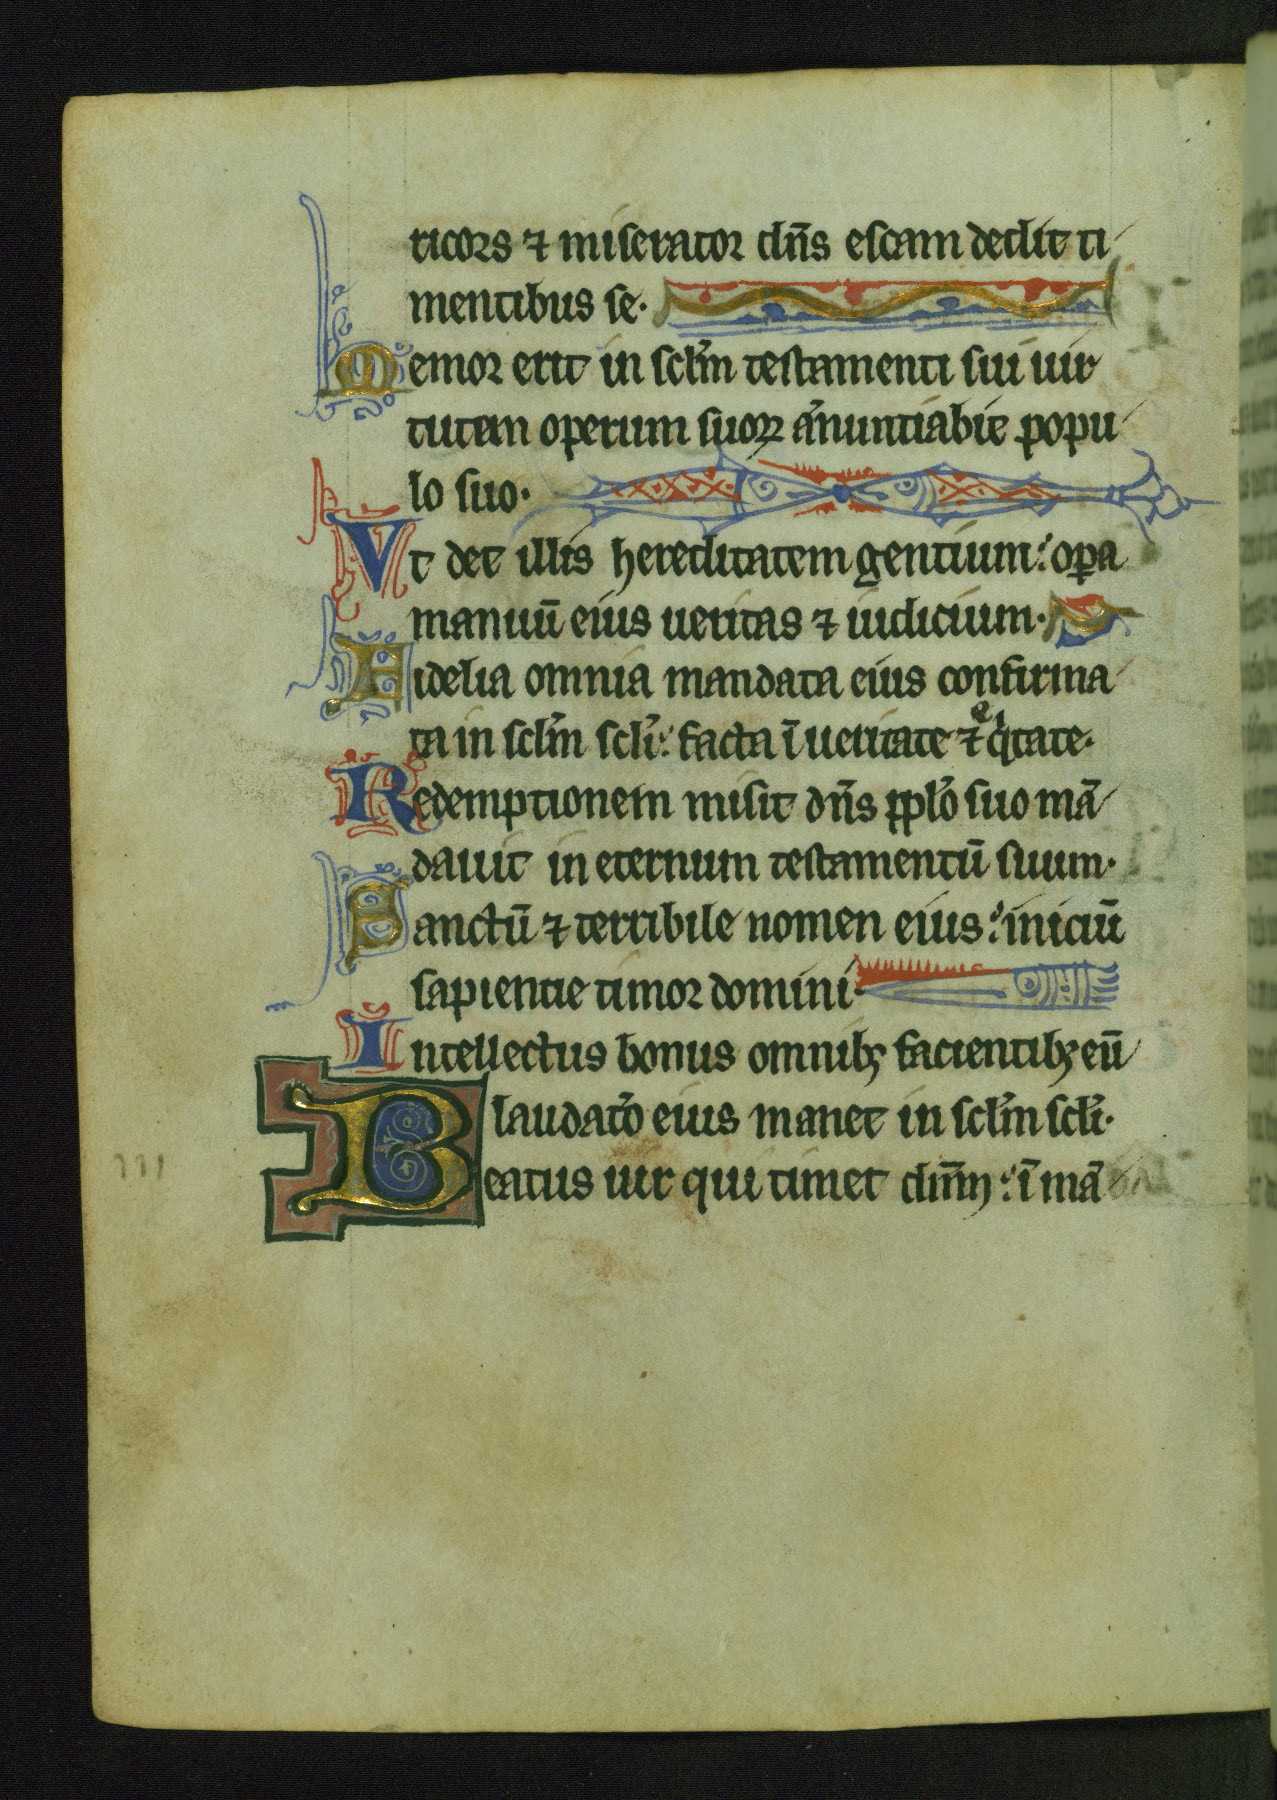 ricors ⁊ miserator dn̄s escam dedit ti
mentibus se.
Memor erit in sclm̄ testamenti sui uir
tutem operum suoꝝ anuntiabit popu
lo suo.
Vt det illis hereditatem gentium: oꝑa
manuū eius ueritas ⁊ iudicium.
Fidelia omnia mandata eius confirma
ta in sclm̄ scli: facta ī ueritate ⁊ eq̄tate.
Redemptionem misit dn̄s ppl̄o suo mā
dauit in eternum testamentū suum.
Sanctū ⁊ terribile nomen eius: iniciū
sapientie timor domini.
Intellectus bonus omnibꝫ facientibꝫ eū
laudat̄o eius manet in sclm̄ scli.
Beatus uir qui timet dn̄m: ī mā
111